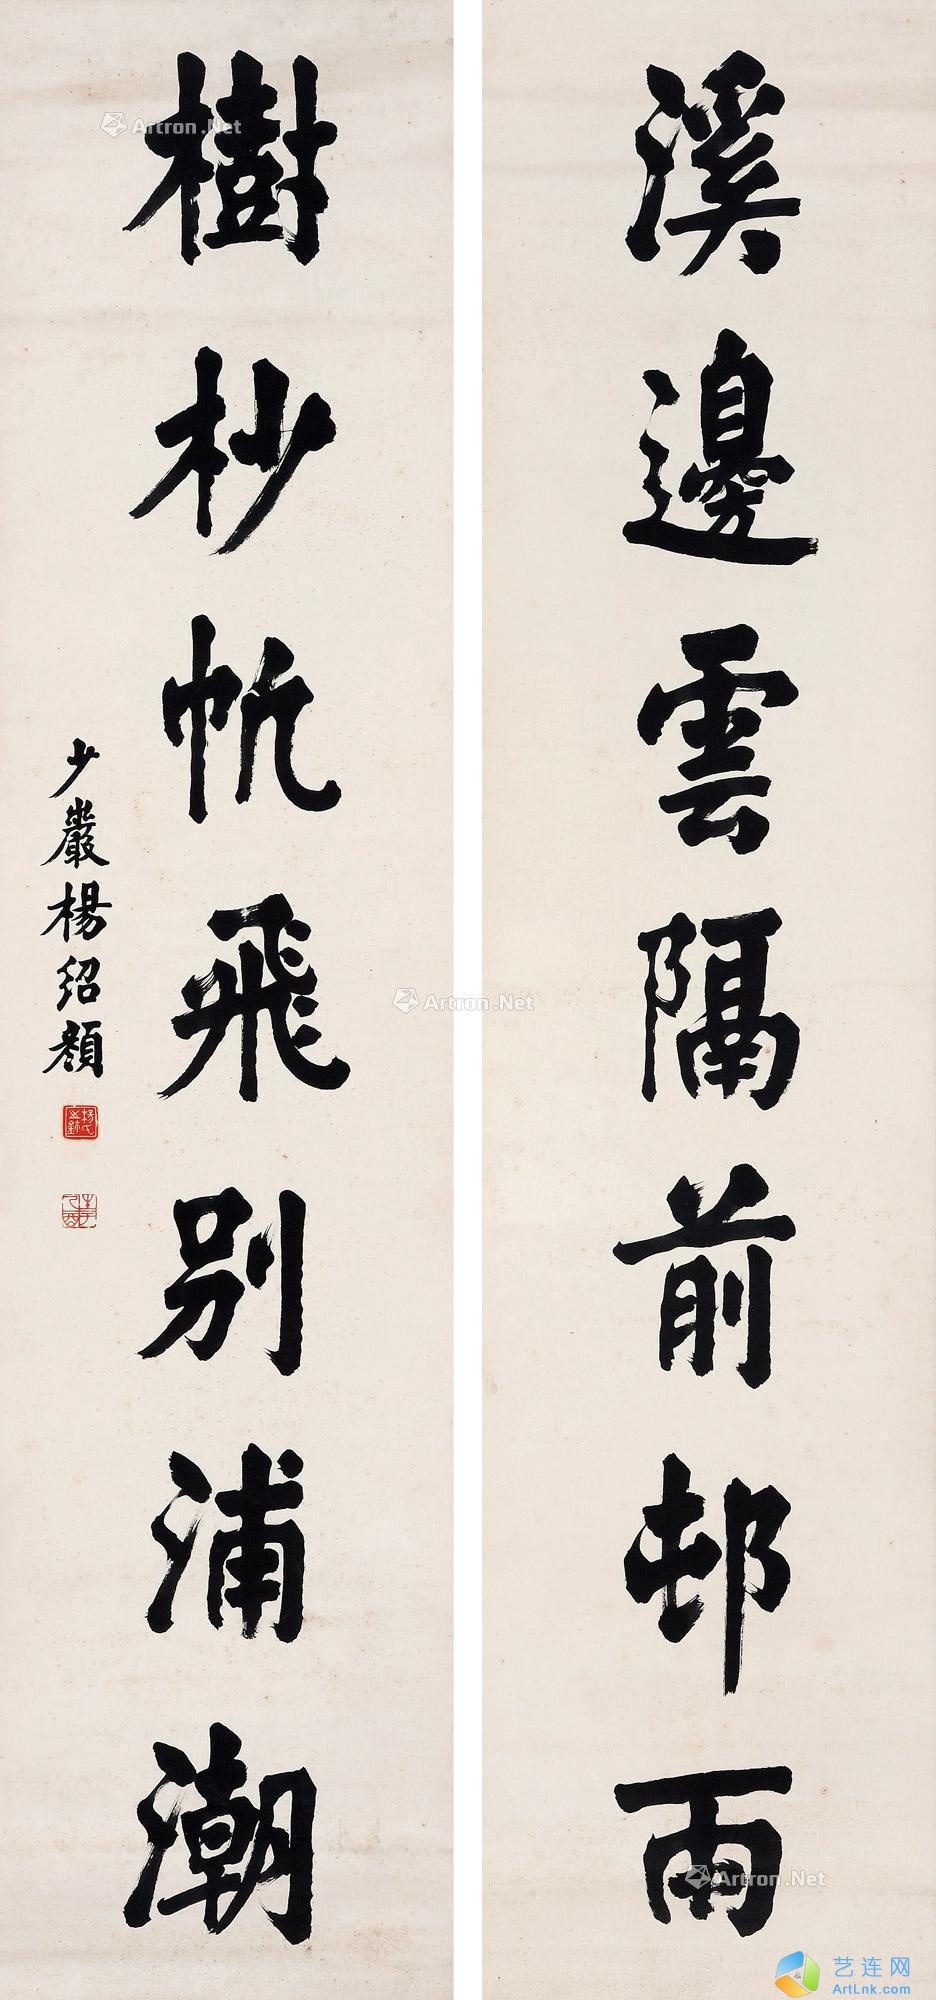 溪邊雲隔前邨雨
樹杪帆飛别浦潮
少巖楊紹顏
Artron.Net
Artron.Net
Artron.Net
艺连网
ArtLnk.com